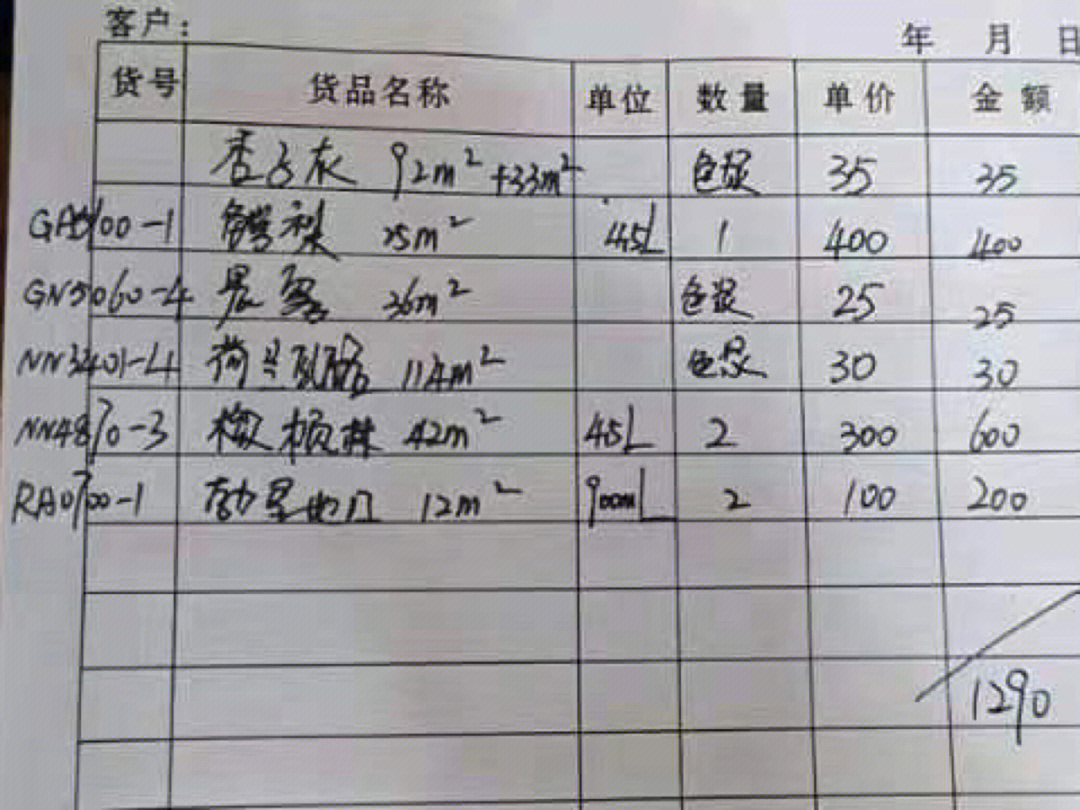 客户: 年 月 日
货号 货品名称 单位 数量 单价 金额
灰 92m² +33m² 色浆 35 35
00-1 25m² 4.5L 1 400 400
GN5060-4 36m² 色浆 25 25
NN3401-4 荷兰乳酪 114m² 色浆 30 30
NN4870-3 42m² 45L 2 300 600
RA0700-1 12m² 900mL 2 100 200
1290